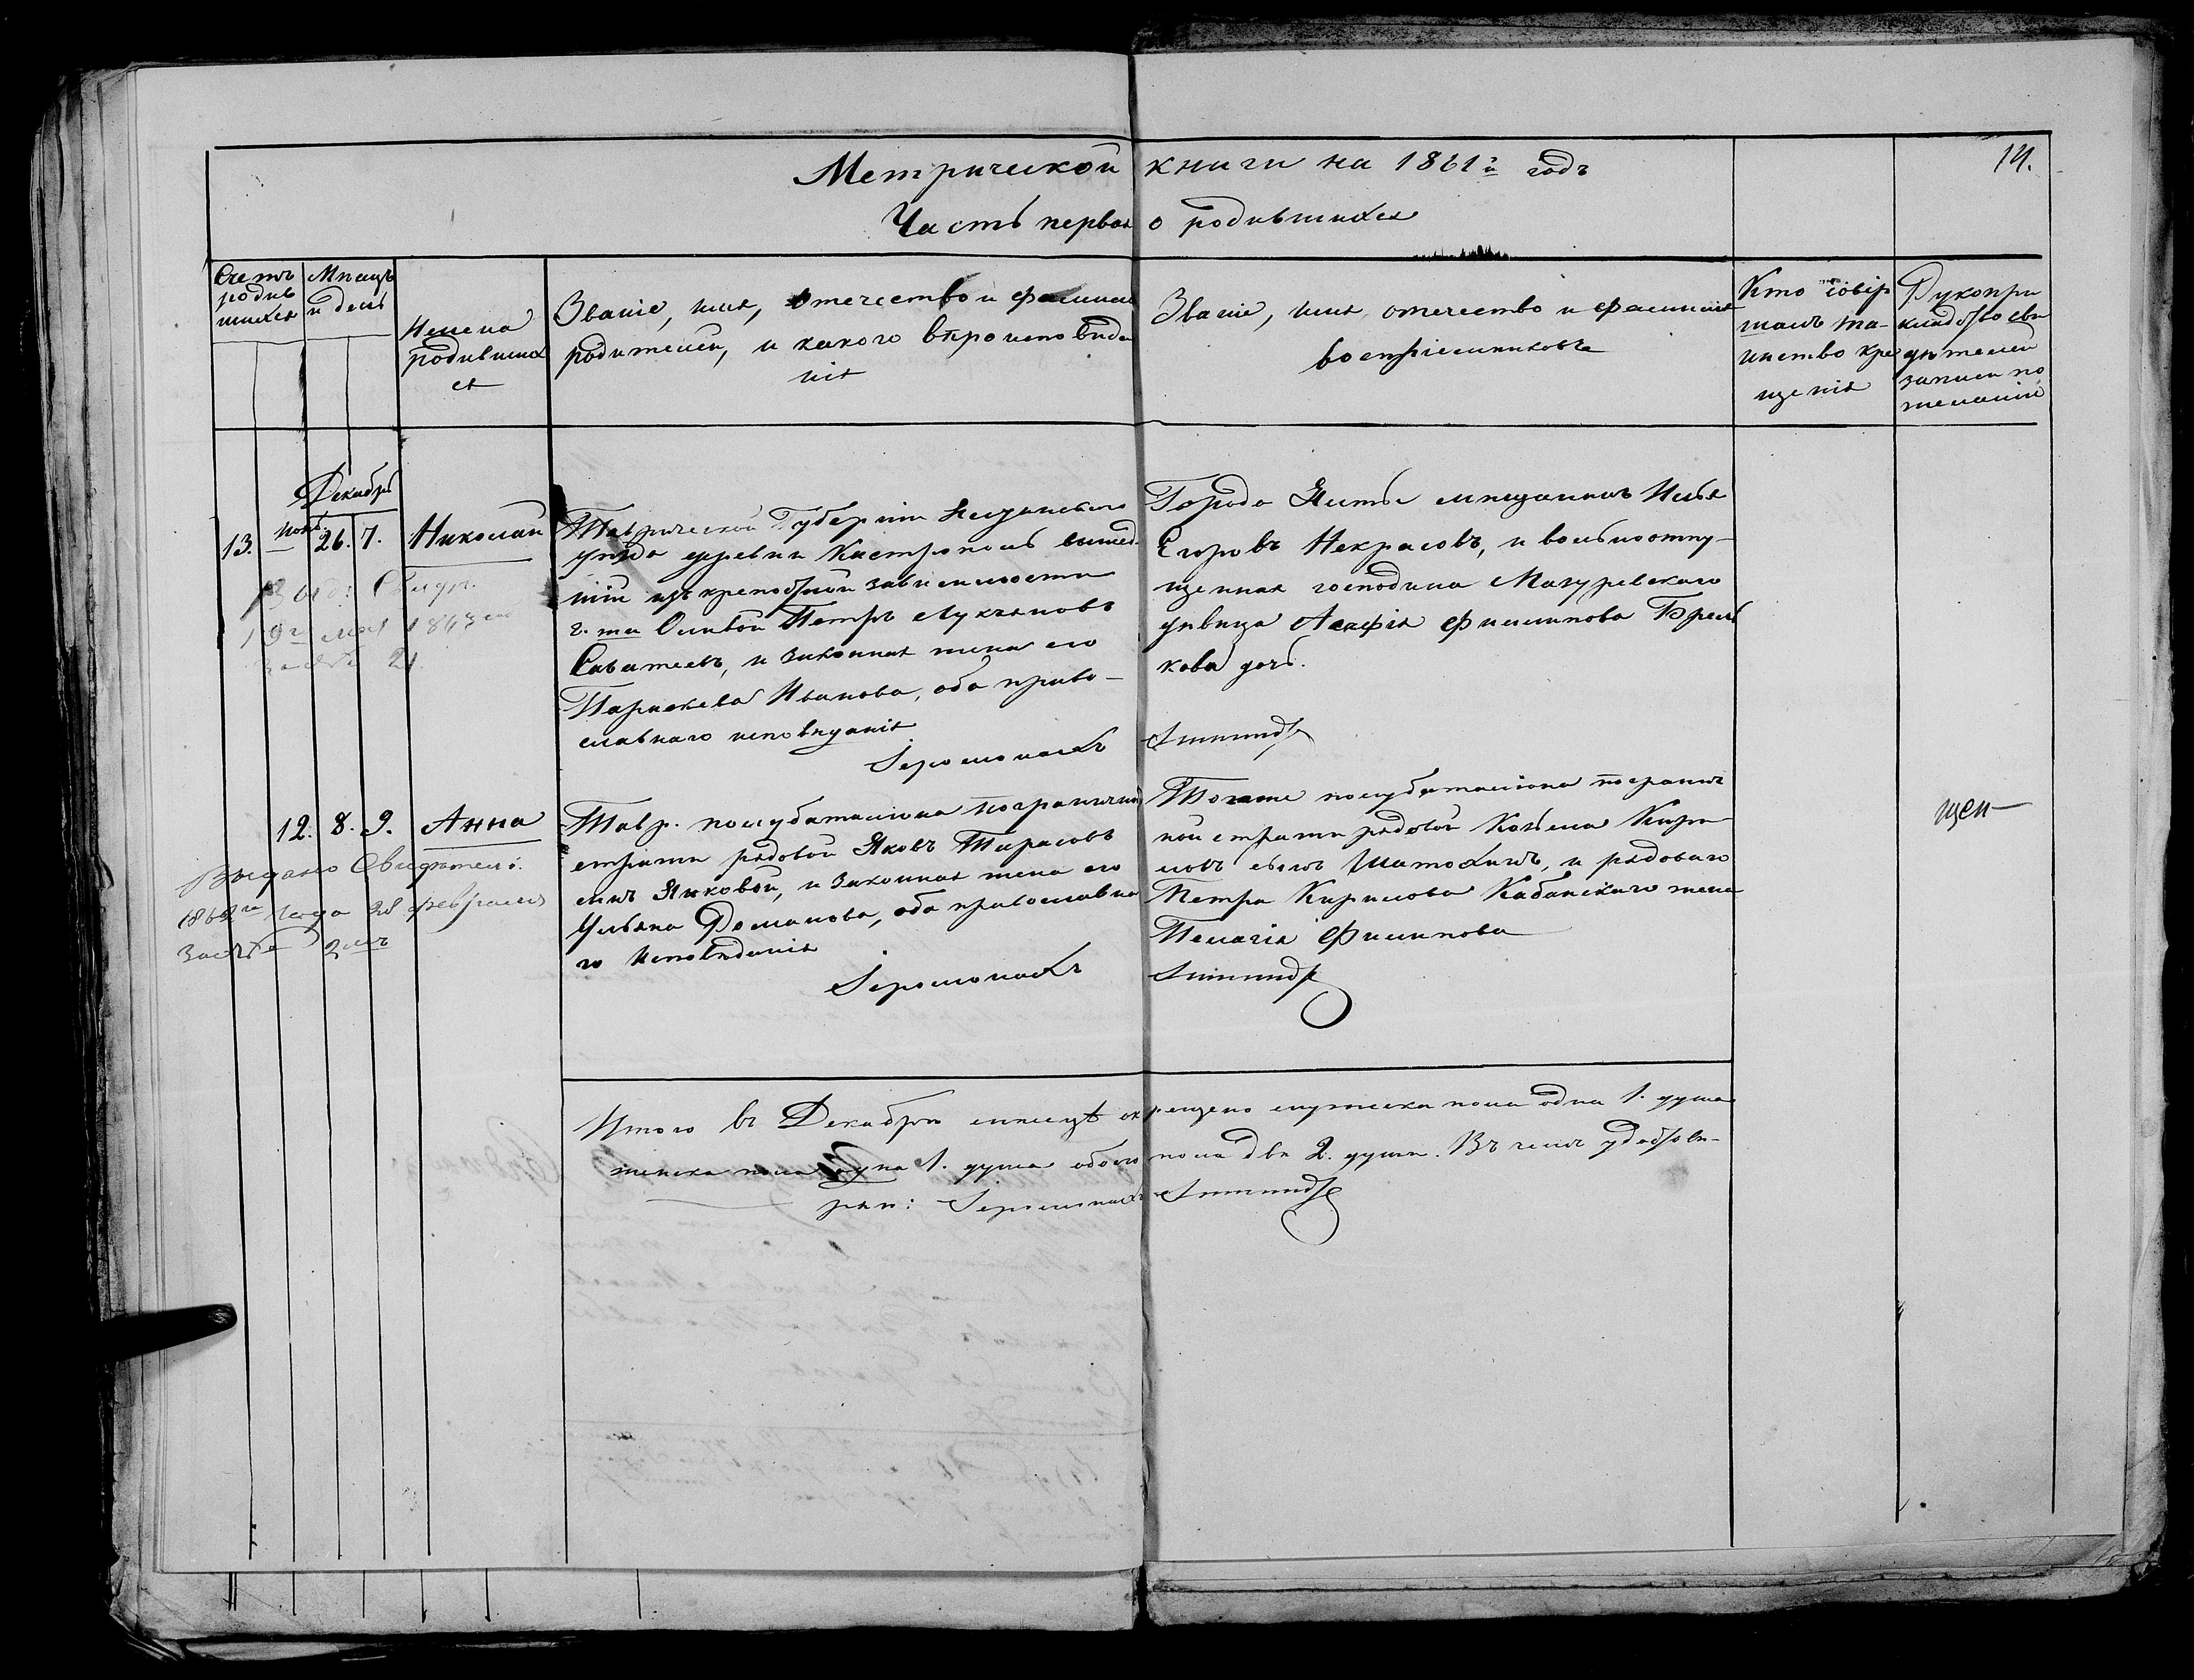 Метрической книги на 1861й годъ
14.
Часть первая о родившихся
Счетъ родив шихся
Мѣсяцъ и день
Имена родивших ся
Званіе, имя, отечество и фамилія
родителей, и какого вѣроисповѣда
нія
Званіе, имя, отечество и фамилія
воспріемниковъ
Кто совер
шалъ та-
инство кре
щенія
Рукопри
кладство сви
дѣтелей
записи по
желанію
Декабрь
13. Нояб. 26. 7. Николай
Таврической Губерніи Ялтинскаго
уѣзда деревни Кастрополь вышед-
шій изъ крепостной зависимости
г. Оливой Петръ Лукьяновъ
Саватеевъ, и законная жена его
Параскева Иванова, оба право-
славнаго исповѣданія
Іеромонахъ
Города Ялты мещанинъ Илья
Егоровъ Некрасовъ, и вольноотпу-
щенная господина Мазуревскаго
дѣвица Агафія Филипова
кова дочь.
Выд: Свидѣт.
19го мая
за № 21.
12. 8. 9. Анна
Тавр. полубаталіона пограничной
стражи рядовой Яковъ Тарасовъ
сынъ Яковой, и законная жена его
Ульяна Романова, оба православна
го исповѣданія
Іеромонахъ
Тогоже полубаталіона погранич
ной стражи рядовой Козьма Кири
ловъ сынъ Шатохинъ, и рядоваго
Петра Кирилова Кабанскаго жена
Пелагія Филипова
щен-
Выдано Свидѣтель:
1862го года 28 февраля
за № 2мъ
Итого въ Декабрѣ месяцѣ окрещено мужеска пола одна 1. душа
женска пола одна 1. душа обоего пола двѣ 2. души. Въ чемъ удостовѣ-
ряю: Іеромонахъ